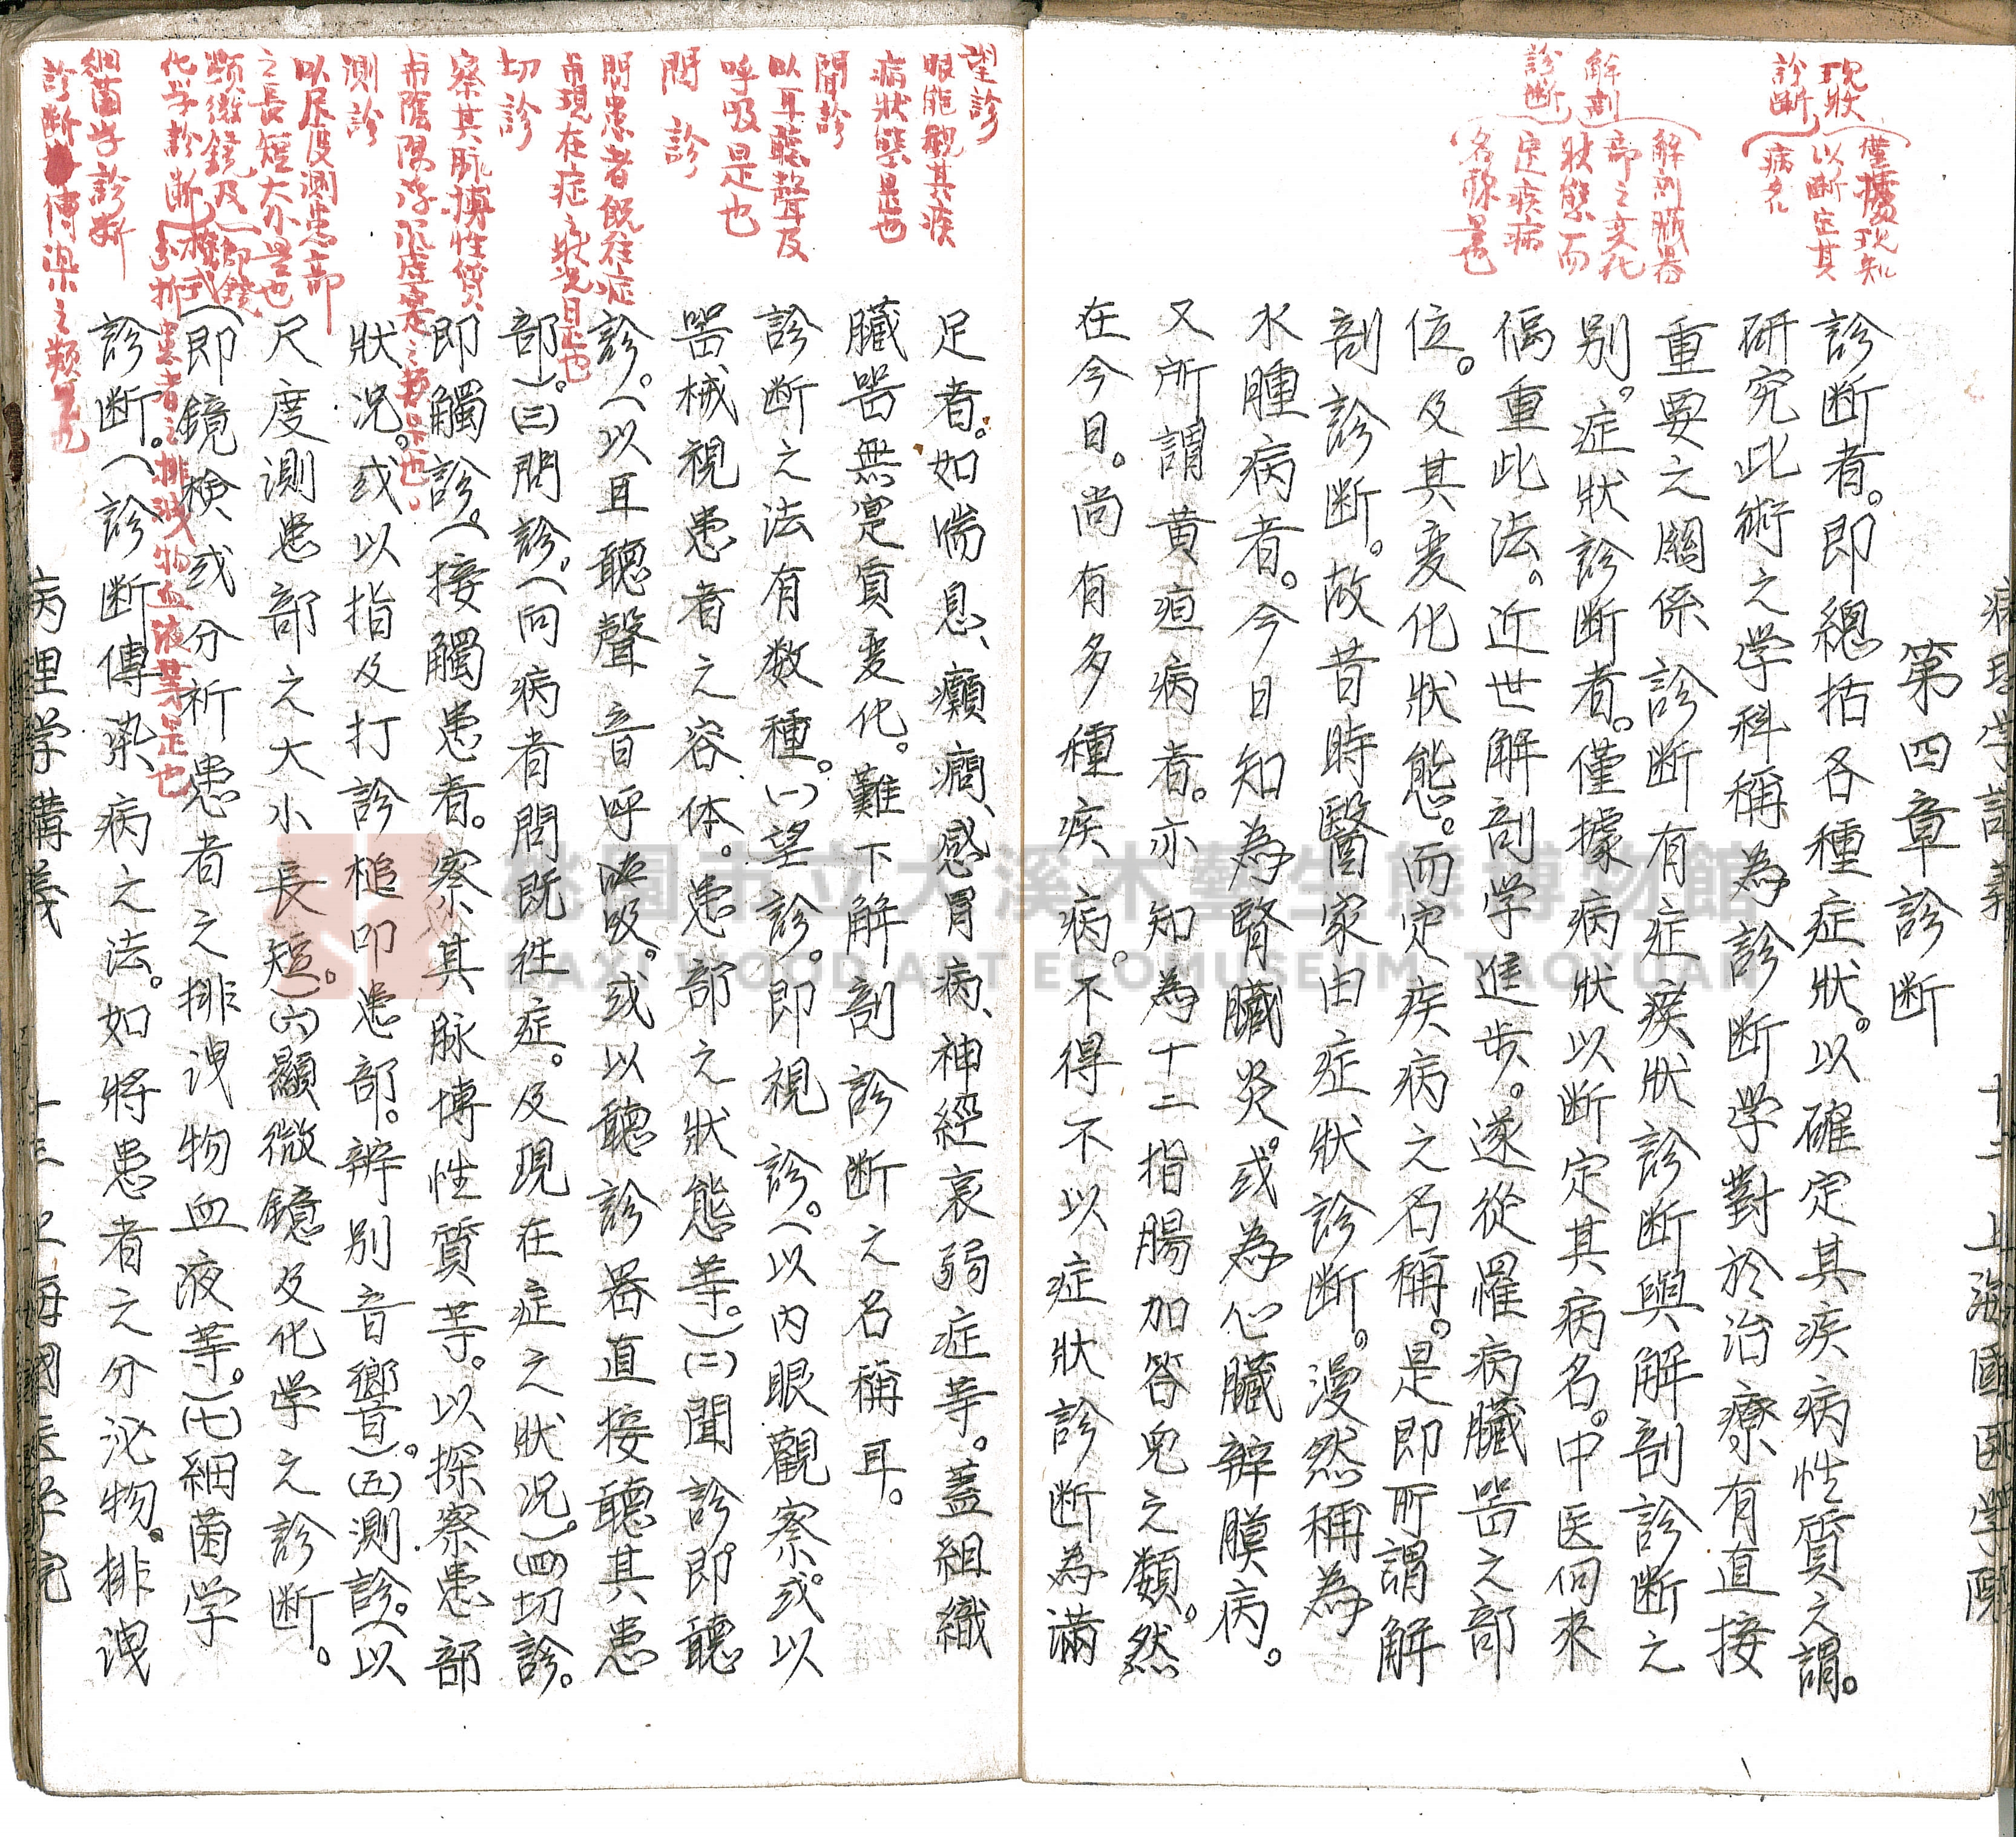 病理学講義 十二 上海國医学院
第四章診断
診断者。即總括各種症狀。以確定其疾病性質之謂。
研究此術之学科稱為診断学對於治療有直接
重要之關係診断有症瘓狀診断與解剖診断之
別。症狀診断者。僅據病狀以断定其病名。中医向来
偏重此法。近世解剖学進步。遂從罹病臟器之部
位。及其变化狀態。而定疾病之名稱。是即所謂解
剖診断。故昔時醫家由症狀診断。漫然稱為
水腫病者。今日知為腎臟炎。或為心臟辨膜病。
又所謂黄疸病者。亦知為十二指腸加答兒之類。然
在今日。尚有多種疾病。不得不以症狀診断為滿
現狀
診断
僅據現知
以断定其
病名
解剖
診断
解剖臟器
部之变化
狀態而
定疾病
名称是也
足者。如喘息、癲癇、感冒病、神經衰弱症等。蓋組織
臟器無寔質变化。難下解剖診断之名稱耳。
診断之法有数種。(一)望診。即視診。(以内眼觀察。或以
器械視患者之容体。患部之狀態等。)(二)聞診。即聽
診。(以耳聽聲音呼吸。或以聽診器直接聽其患
部)。(三)問診。(向病者問既往症。及現在症之狀况。)(四)切診。
即觸診。(接觸患者。察其脉搏性質等。以探察患部
狀况。或以指及打診槌叩患部。辨別音響音)。(五)測診。(以
尺度測患部之大小長短。(六)顯微鏡及化学之診断。
(即鏡検或分析患者之排洩物血液等。)(七)細菌学
診断。(診断傳染病之法。如將患者之分泌物。排洩
病理学講義 十三 上海國医学院
望診
眼能觀其疾
病狀態是也
聞診
以耳聽聲及
呼吸是也
問診
問患者既往症
甫現在症之狀况是也
切診
察其脉搏性質
甫陰陽浮沉虚寔之類是也。
測診
以尺度測患部
之長短大小是也
顕微鏡及(即鏡
化学診断 検或
分析患者之排洩物血液等是也
細菌学診断
診断傳染之類是也
桃園市立大溪木藝生態博物館
DAXI WOOD ART ECOMUSEUM, TAOYUAN